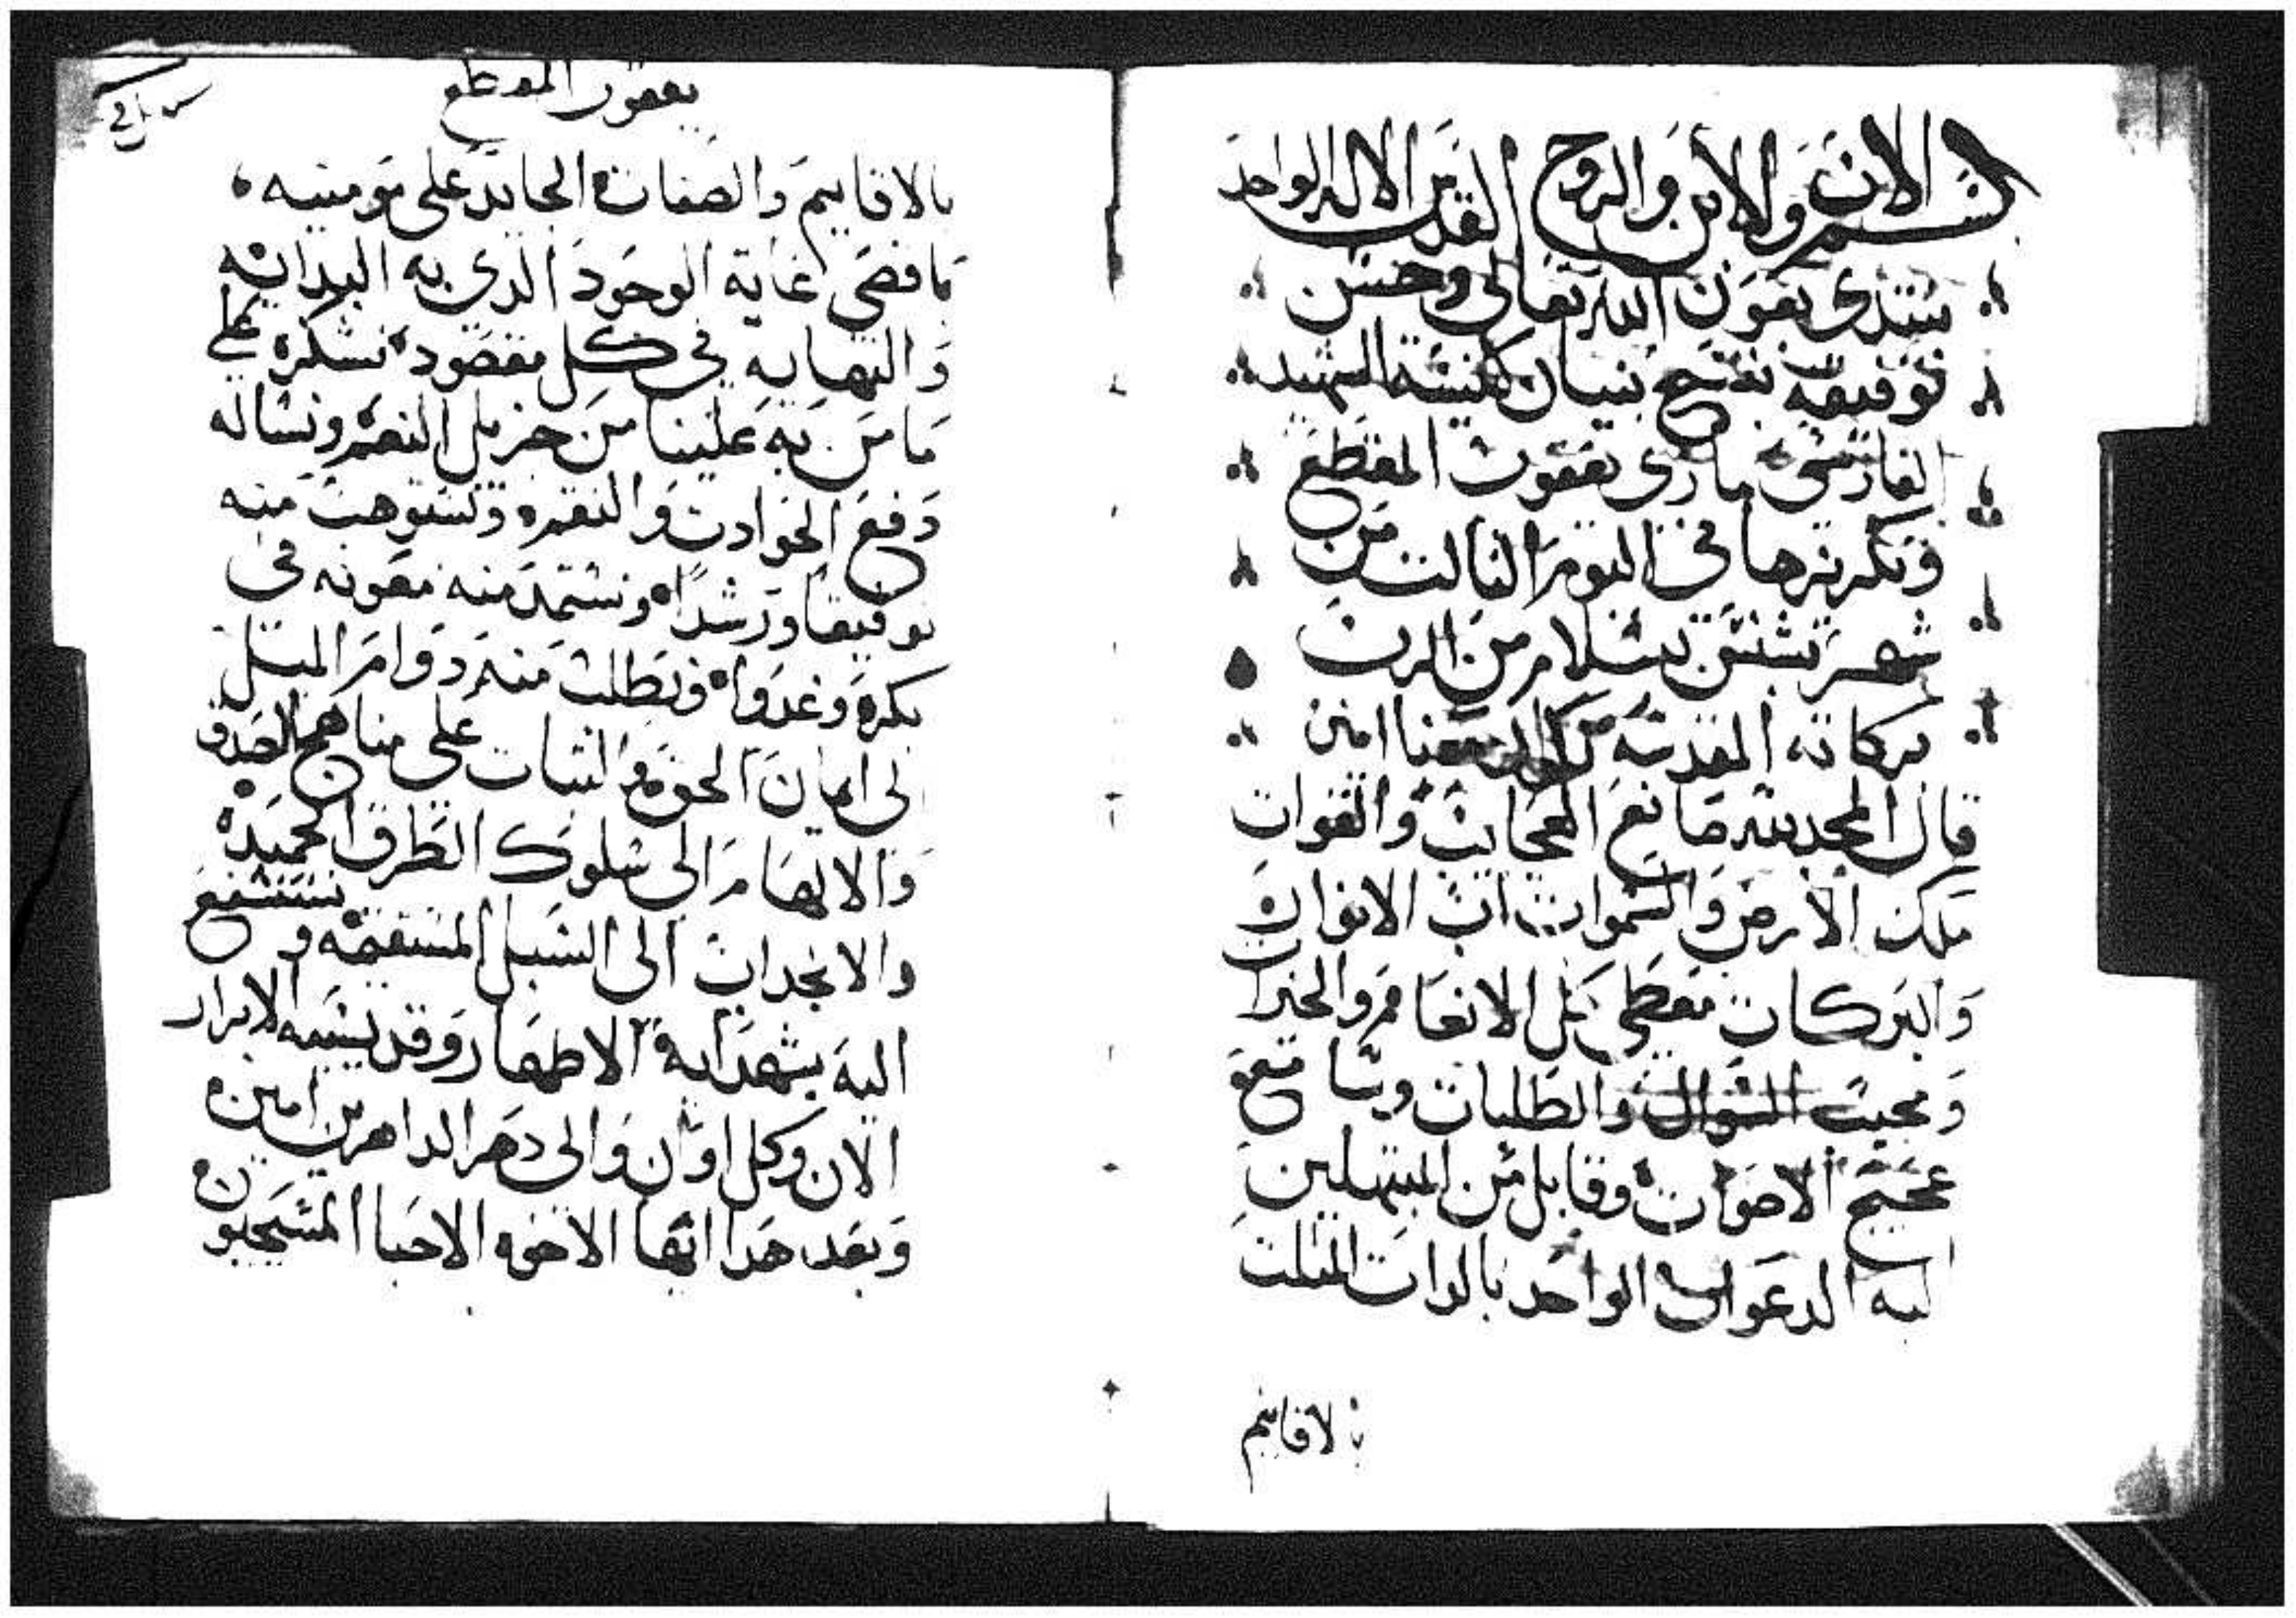 بسم الاب والابن والروح القدس الاله الواحد
نبتدى بعون الله تعالى وحسن
توفيقه بفتح بنيان كنيسة الشهيد
الفارسى مارى يعقوب المقطع
وتكريزها فى اليوم الثالت من
شهر بشنس بسلام من الرب
بركاته المقدسه معنا امين
قال المجد لله صانع العجايب والقوات
ملك الارض والسموات اب الانوار
والبركات معطى كل الانعام والخيرات
ومجيب السوال والطلبات وسامع
عجيج الاصوات وقابل من المبتهلين
اليه الدعوات الواحد بالدات المتلت
بالاقانيم
يعقوب المقطع
بالاقانيم والصفات الجايد على مومنيه
بافضى غاية الوجود الدى به البدايه
والنهايه فى كل مقصود نشكره على
ما من به علينا من جزيل النعم ونساله
دفع الحوادت والنقم ونستوهب منه
توفيقا ورشدا ونستمد منه معونه فى
بكرة وغدوا ونطلب منه دوام الميل
الى ايمان الحق والثبات على مناهج الصدق
والالهام الى سلوك الطرق الحميده
والانجداب الى السبل المستقيمه ونستشفع
اليه بشهدايه الاطهار وقديسيه الابرار
الان وكل اوان والى دهر الداهرين امين
وبعد هدا ايها الاخوه الاحبا المسيحيون